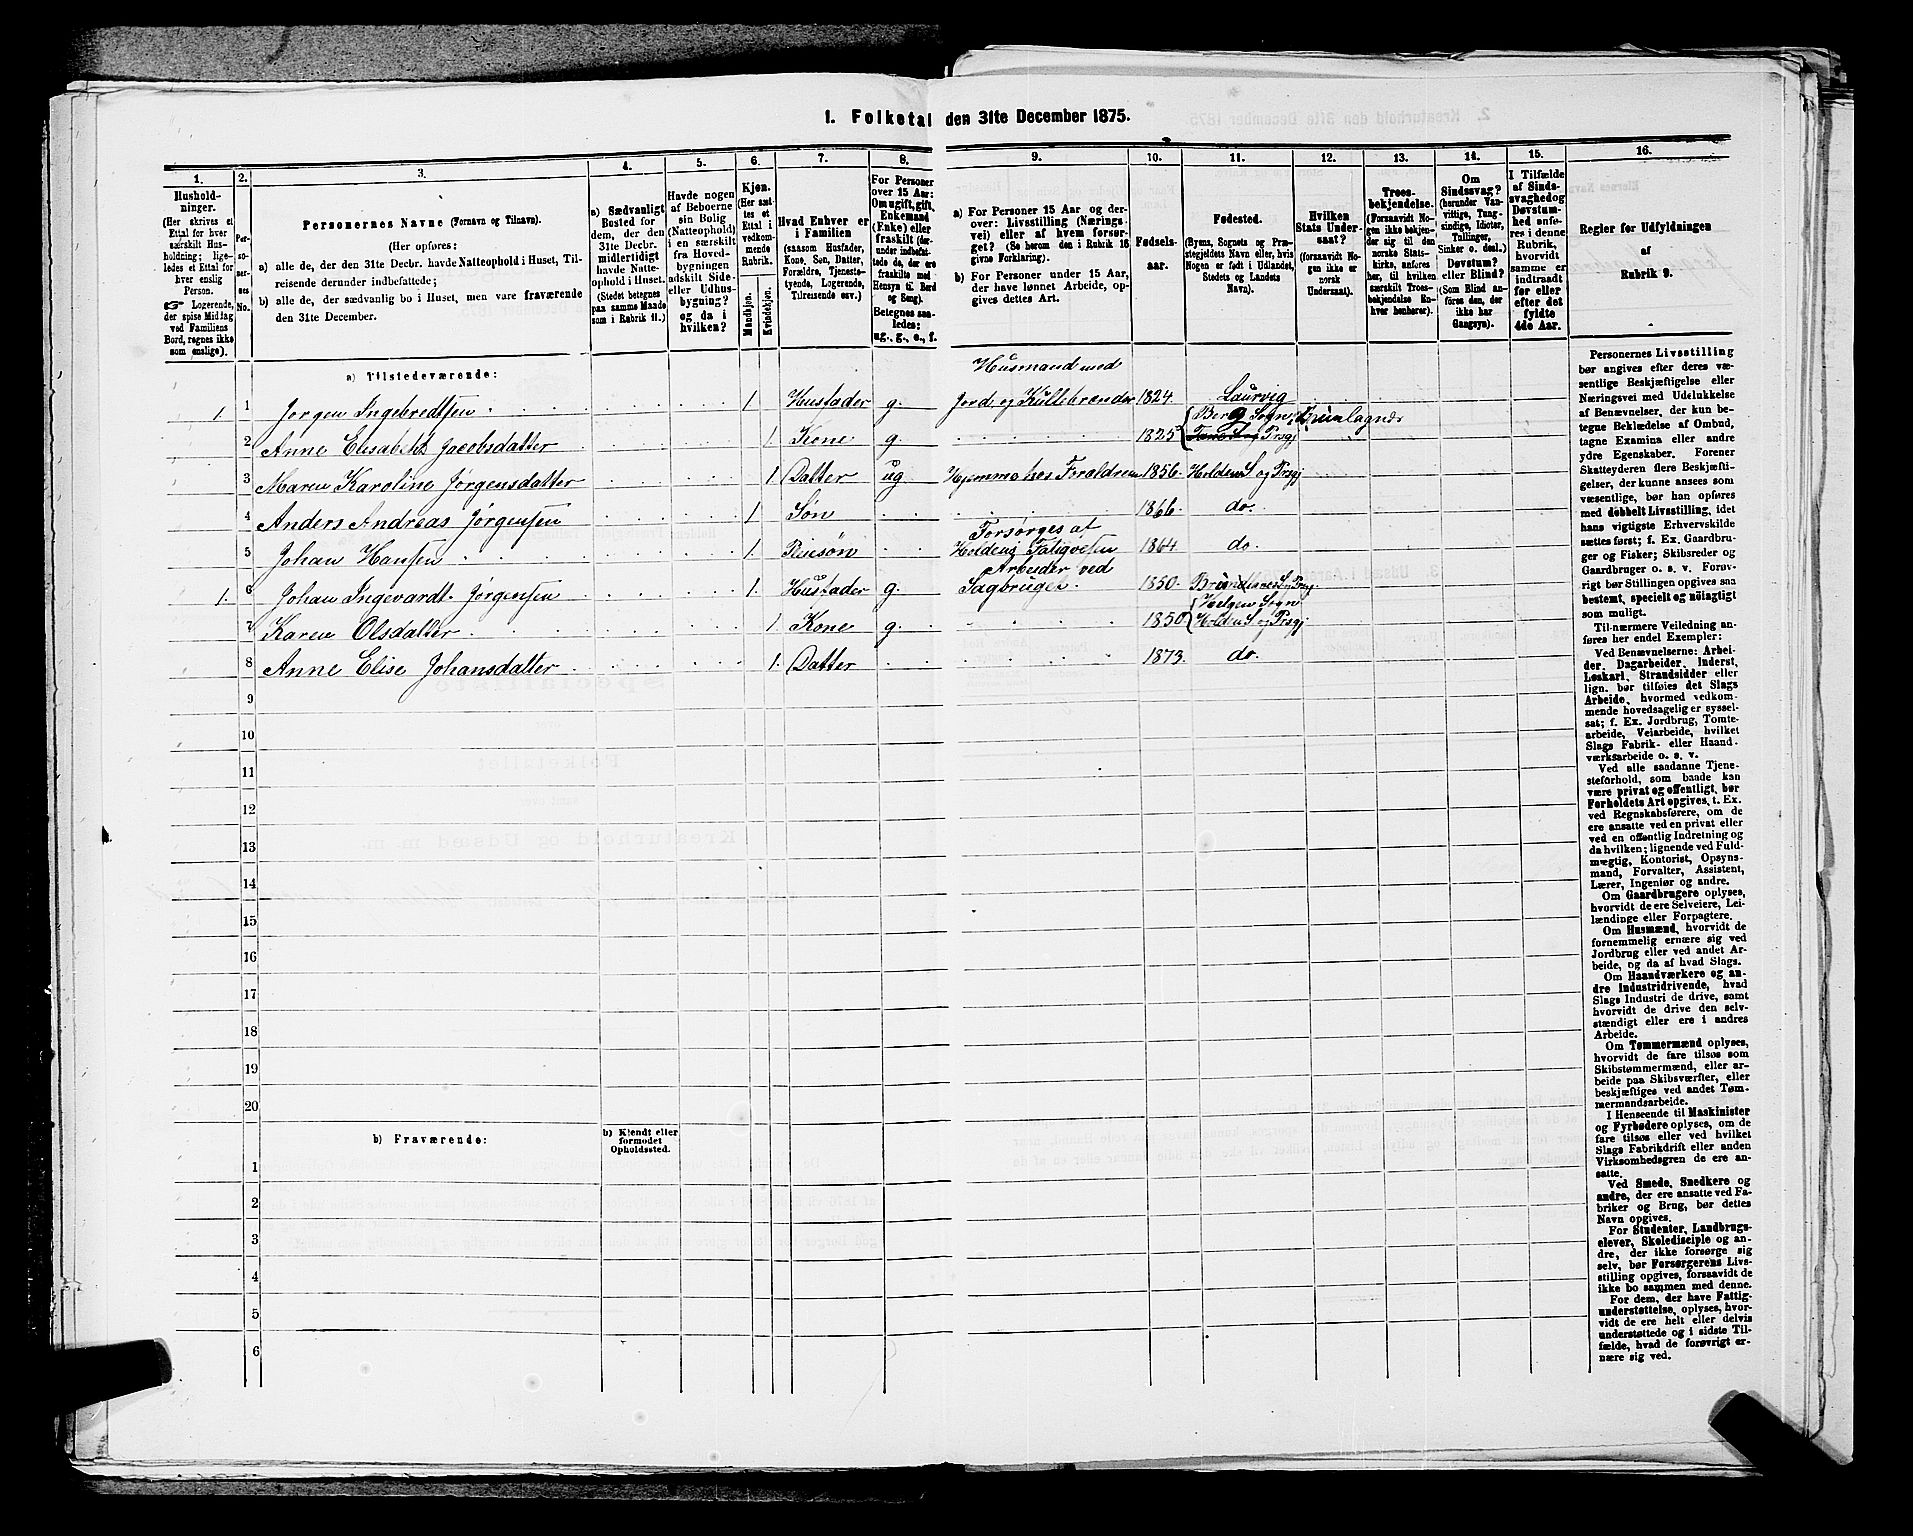 1. Folketal den 31te December 1875.
1. 2. 3. 4. 5. 6. 7. 8. 9. 10. 11. 12. 13. 14. 15. 16.
Hushold-
ninger.
(Her skrives et
Ettal for hver
særskilt Hus-
holdning; lige-
ledes et Ettal for
hver enslig
Person.
☞ Logerende,
der spise Middag
ved Familiens
Bord, regnes ikke
som enslige).
Per-
so-
ner-
nes
No.
Personernes Navne (Fornavn og Tilnavn).
(Her opføres:
a) alle de, der den 31te Decbr. havde Natteophold i Huset, Til-
reisende derunder indbefattede;
b) alle de, der sædvanlig bo i Huset, men vare fraværende
den 31te December.
a) Sædvanligt
Bosted for
dem, der den
31te Decbr.
midlertidigt
havde Natte-
ophold i Huset.
(Stedet betegnes
paa samme Maade
som i Rubrik 11.)
Havde nogen
af Beboerne
sin Bolig
(Natteophold)
i en særskilt
fra Hoved-
bygningen
adskilt Side-
eller Udhus-
bygning?
og da i
hvilken?
Kjøn.
(Her sæt-
tes et
Ettal i
vedkom-
mende
Rubrik.
Mandkjøn.
Kvindekjøn.
Hvad Enhver er
i Familien
(saasom Husfader,
Kone, Søn, Datter,
Forældre, Tjeneste-
tyende, Logerende,
Tilreisende osv.)
For Personer
over 15 Aar:
Om ugift, gift,
Enkemand
(Enke) eller
fraskilt (der-
under indbefat-
tede de, der ere
fraskilte med
Hensyn til Bord
og Seng).
Betegnes saa-
ledes:
ug., g., e., f.
a) For Personer 15 Aar og der-
over: Livsstilling (Nærings-
vei) eller af hvem forsør-
get? (Se herom den i Rubrik 16
givne Forklaring).
b) For Personer under 15 Aar,
der have lønnet Arbeide, op-
gives dettes Art.
Fødsels-
aar.
Fødested.
(Byens, Sognets og Præ-
stegjeldets Navn eller, hvis
Nogen er født i Udlandet,
Stedets og Landets
Navn).
Hvilken
Stats Under-
saat?
(forsaavidt No-
gen ikke er
norsk
Undersaat).
Troes-
bekjendelse.
(Forsaavidt No-
gen ikke bekjen-
der sig til den
norske Stats-
kirke, anføres
her, til hvilken
særskilt Troes-
bekjendelse En-
hver henhører).
Om
Sindssvag?
(herunder Van-
vittige, Tung-
sindige, Idioter,
Tullinger,
Sinker o. desl.)
Døvstum?
eller Blind?
(Som Blind an-
føres den, der
ikke har
Gangsyn).
I Tilfælde
af Sinds-
svaghed og
Døvstum-
hed anfø-
res i denne
Rubrik,
hvorvidt
samme er
indtraadt
før eller
efter det
fyldte
4de Aar.
Regler for Udfyldningen
af
Rubrik 9.
a) Tilstedeværende:
Husmand med
1. 1 Jørgen Ingebredtsen 1 Husfader g. Jord og Kullebrænder 1824. Laurvig
Berg Sogn, Brunlagnæs
2 Anne Elisabeth Jacobsdatter 1. Kone g. 1825 Prsgj
3 Maren Karoline Jørgensdatter 1 Datter ug Hjemme hos Forældrene 1856. Holdens S. og Prsgj
4 Anders Andreas Jørgensen 1 Søn 1866. do.
Forsørges af
5 Johan Hansen 1. Pleiesøn Holdens Fatigvesen 1864 do.
Arbeider ved
1. 6 Johan Ingevardt Jørgensen 1. Husfader g. Sagbruget. 1850. S. Prsgj.
Helgen Sogn
7 Karen Olsdatter 1. Kone g. 1850 Holden S. og Prsgj
8 Anne Elise Johansdatter 1. Datter 1873. do.
9
10
11
12
13
14
15
16
17
18
19
20
b) Fraværende:
b) Kjendt eller
formodet
Opholdssted.
1
2
3
4
5
6
Personernes Livsstilling
bør angives efter deres væ-
sentlige Beskjæftigelse eller
Næringsvei med Udelukkelse
af Benævnelser, der kun be-
tegne Beklædelse af Ombud,
tagne Examina eller andre
ydre Egenskaber. Forener
Skatteyderen flere Beskjæfti-
gelser, der kunne ansees som
væsentlige, bør han opføres
med dobbelt Livsstilling, idet
hans vigtigste Erhvervskilde
sættes først; f. Ex. Gaardbru-
ger og Fisker; Skibsreder og
Gaardbruger o. s. v. Forøv-
rigt bør Stillingen opgives saa
bestemt, specielt og nöiagtigt
som muligt.
Til nærmere Veiledning an-
føres her endel Exempler:
Ved Benævnelserne: Arbei-
der, Dagarbeider, Inderst,
Løskarl, Strandsidder eller
lign. bør tilføies det Slags
Arbeide, hvormed vedkom-
mende hovedsagelig er syssel-
sat; f. Ex. Jordbrug, Tomte-
arbeide, Veiarbeide, hvilket
Slags Fabrik- eller Haand-
værksarbeide o. s. v.
Ved alle saadanne Tjene-
steforhold, som baade kan
være privat og offentligt, bør
Forholdets Art opgives, t. Ex.
ved Regnskabsførere, om de
ere ansatte ved en privat eller
ved en offentlig Indretning og
da hvilken; lignende ved Fuld-
mægtig, Kontorist, Opsyns-
mand, Forvalter, Assistent,
Lærer, Ingeniør og andre.
Om Gaardbrugere oplyses,
hvorvidt de ere Selveiere, Lei-
lændinge eller Forpagtere.
Om Husmænd, hvorvidt de
fornemmelig ernære sig ved
Jordbrug eller ved andet Ar-
beide, og da af hvad Slags.
Om Haandværkere og an-
dre Industridrivende, hvad
Slags Industri de drive, samt
hvorvidt de drive den selv-
stændigt eller ere i andres
Arbeide.
Om Tømmermænd oplyses,
hvorvidt de fare tilsøs som
Skibstømmermænd, eller ar-
beide paa Skibsværfter, eller
beskjæftiges ved andet Tøm-
mermandsarbeide.
I Henseende til Maskinister
og Fyrbødere oplyses, om de
fare tilsøs eller ved hvilket
Slags Fabrikdrift eller anden
Virksomhedsgren de ere an-
satte.
Ved Smede, Snedkere og
andre, der ere ansatte ved Fa-
briker og Brug, bør dettes
Navn opgives.
For Studenter, Landbrugs-
elever, Skoledisciple og an-
dre, der ikke forsørge sig
selv, bør Forsørgerens Livs-
stilling opgives, forsaavidt de
ikke bo sammen med denne.
For dem, der have Fattig-
understøttelse, oplyses, hvor-
vidt de ere helt eller delvis
understøttede og i sidste Til-
fælde, hvad de forøvrigt er-
nære sig ved.